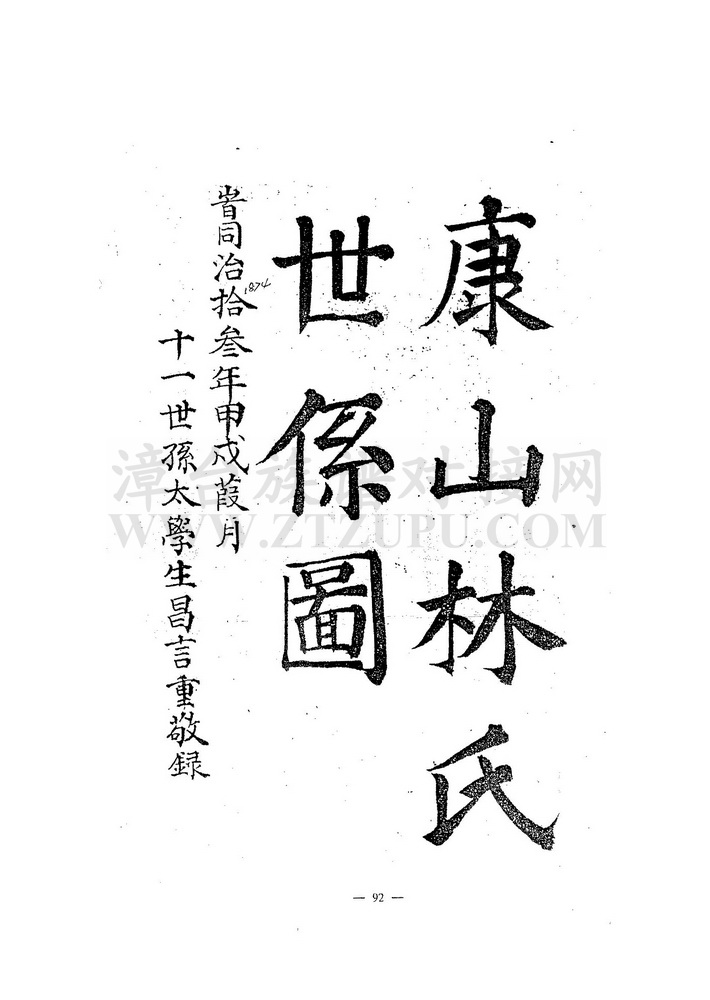 康山林氏
世係圖
旹同治拾叁年甲戌葭月
1874
十一世孫太學生昌言重敬録
漳台族谱对接网
WWW.ZTZUPU.COM
— 92 —